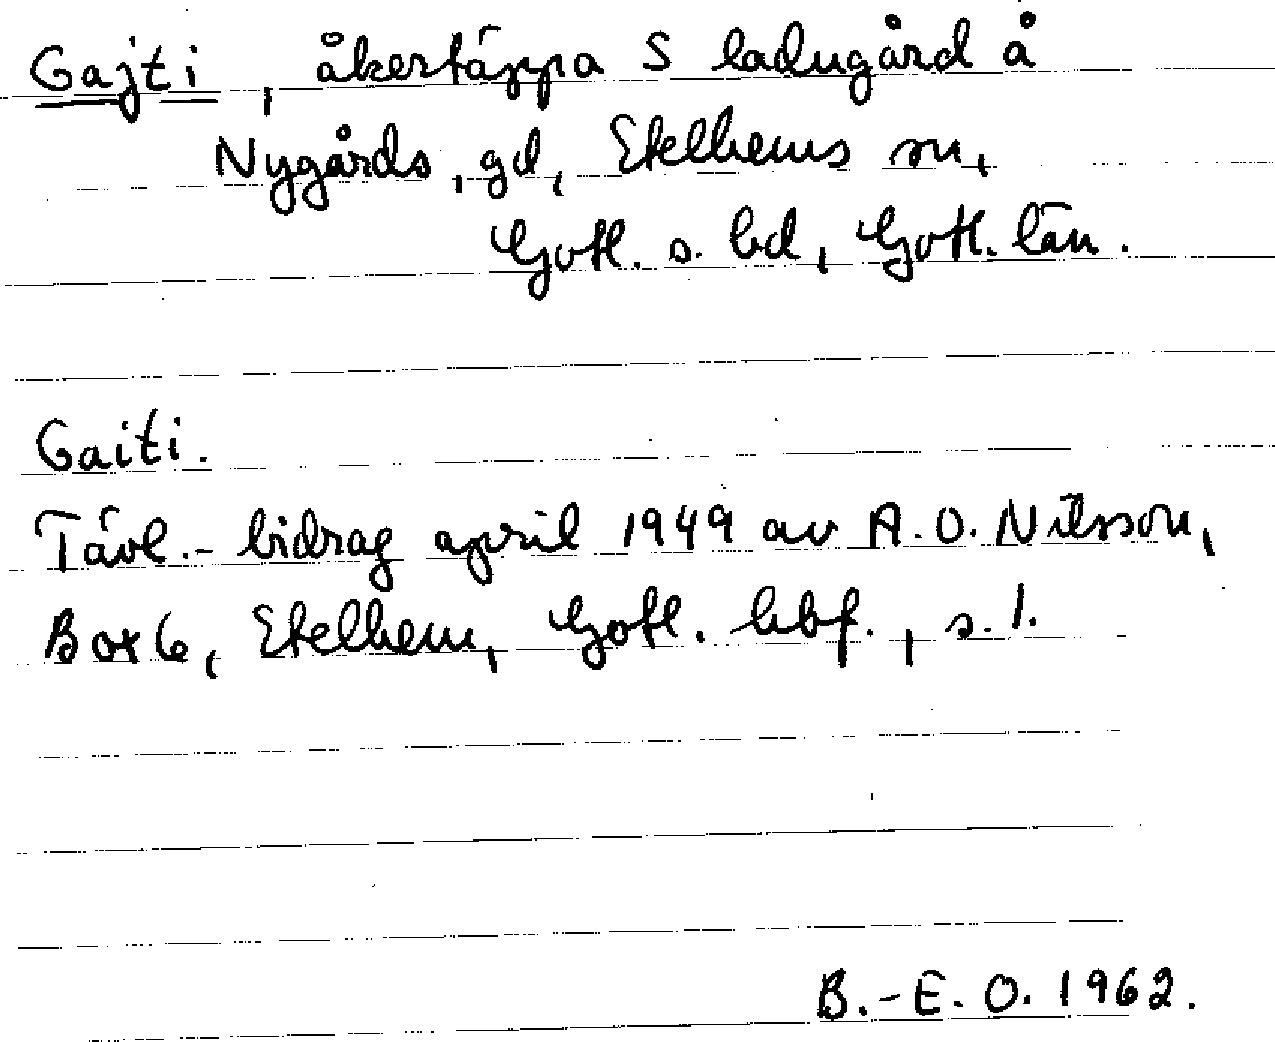 Gajti, åkertäppa S ladugård å
Nygårds, gd, Etelhems sn,
Gotl. s. hd, Gotl. län.
Gaiti.
Tävl.- bidrag april 1949 av A. O. Nilsson,
Box 6, Etelhem, Gotl. hbf., s. 1.
B.-E. O. 1962.